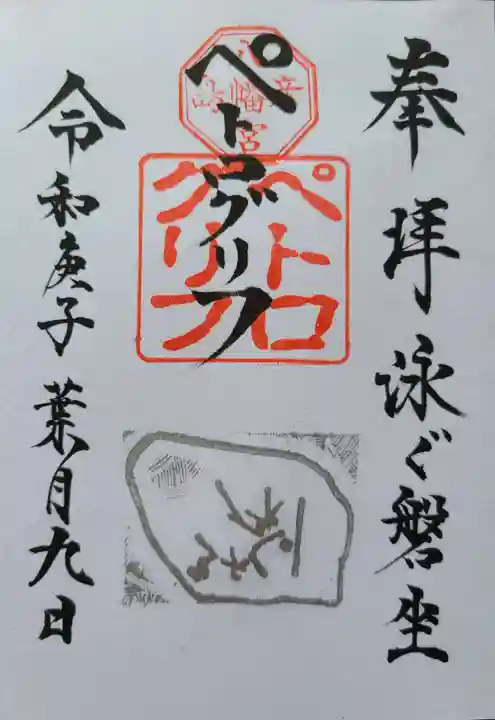 奉拝 泳ぐ磐坐
ペトログリフ
八幡宮
ペトロ
グリフ
令和庚子 葉月九日